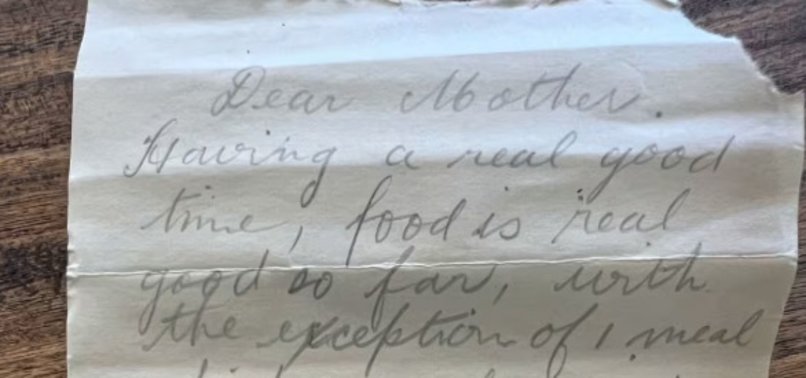 Dear Mother.
Having a real good
time, food is real
good so far, with
the exception of 1 meal